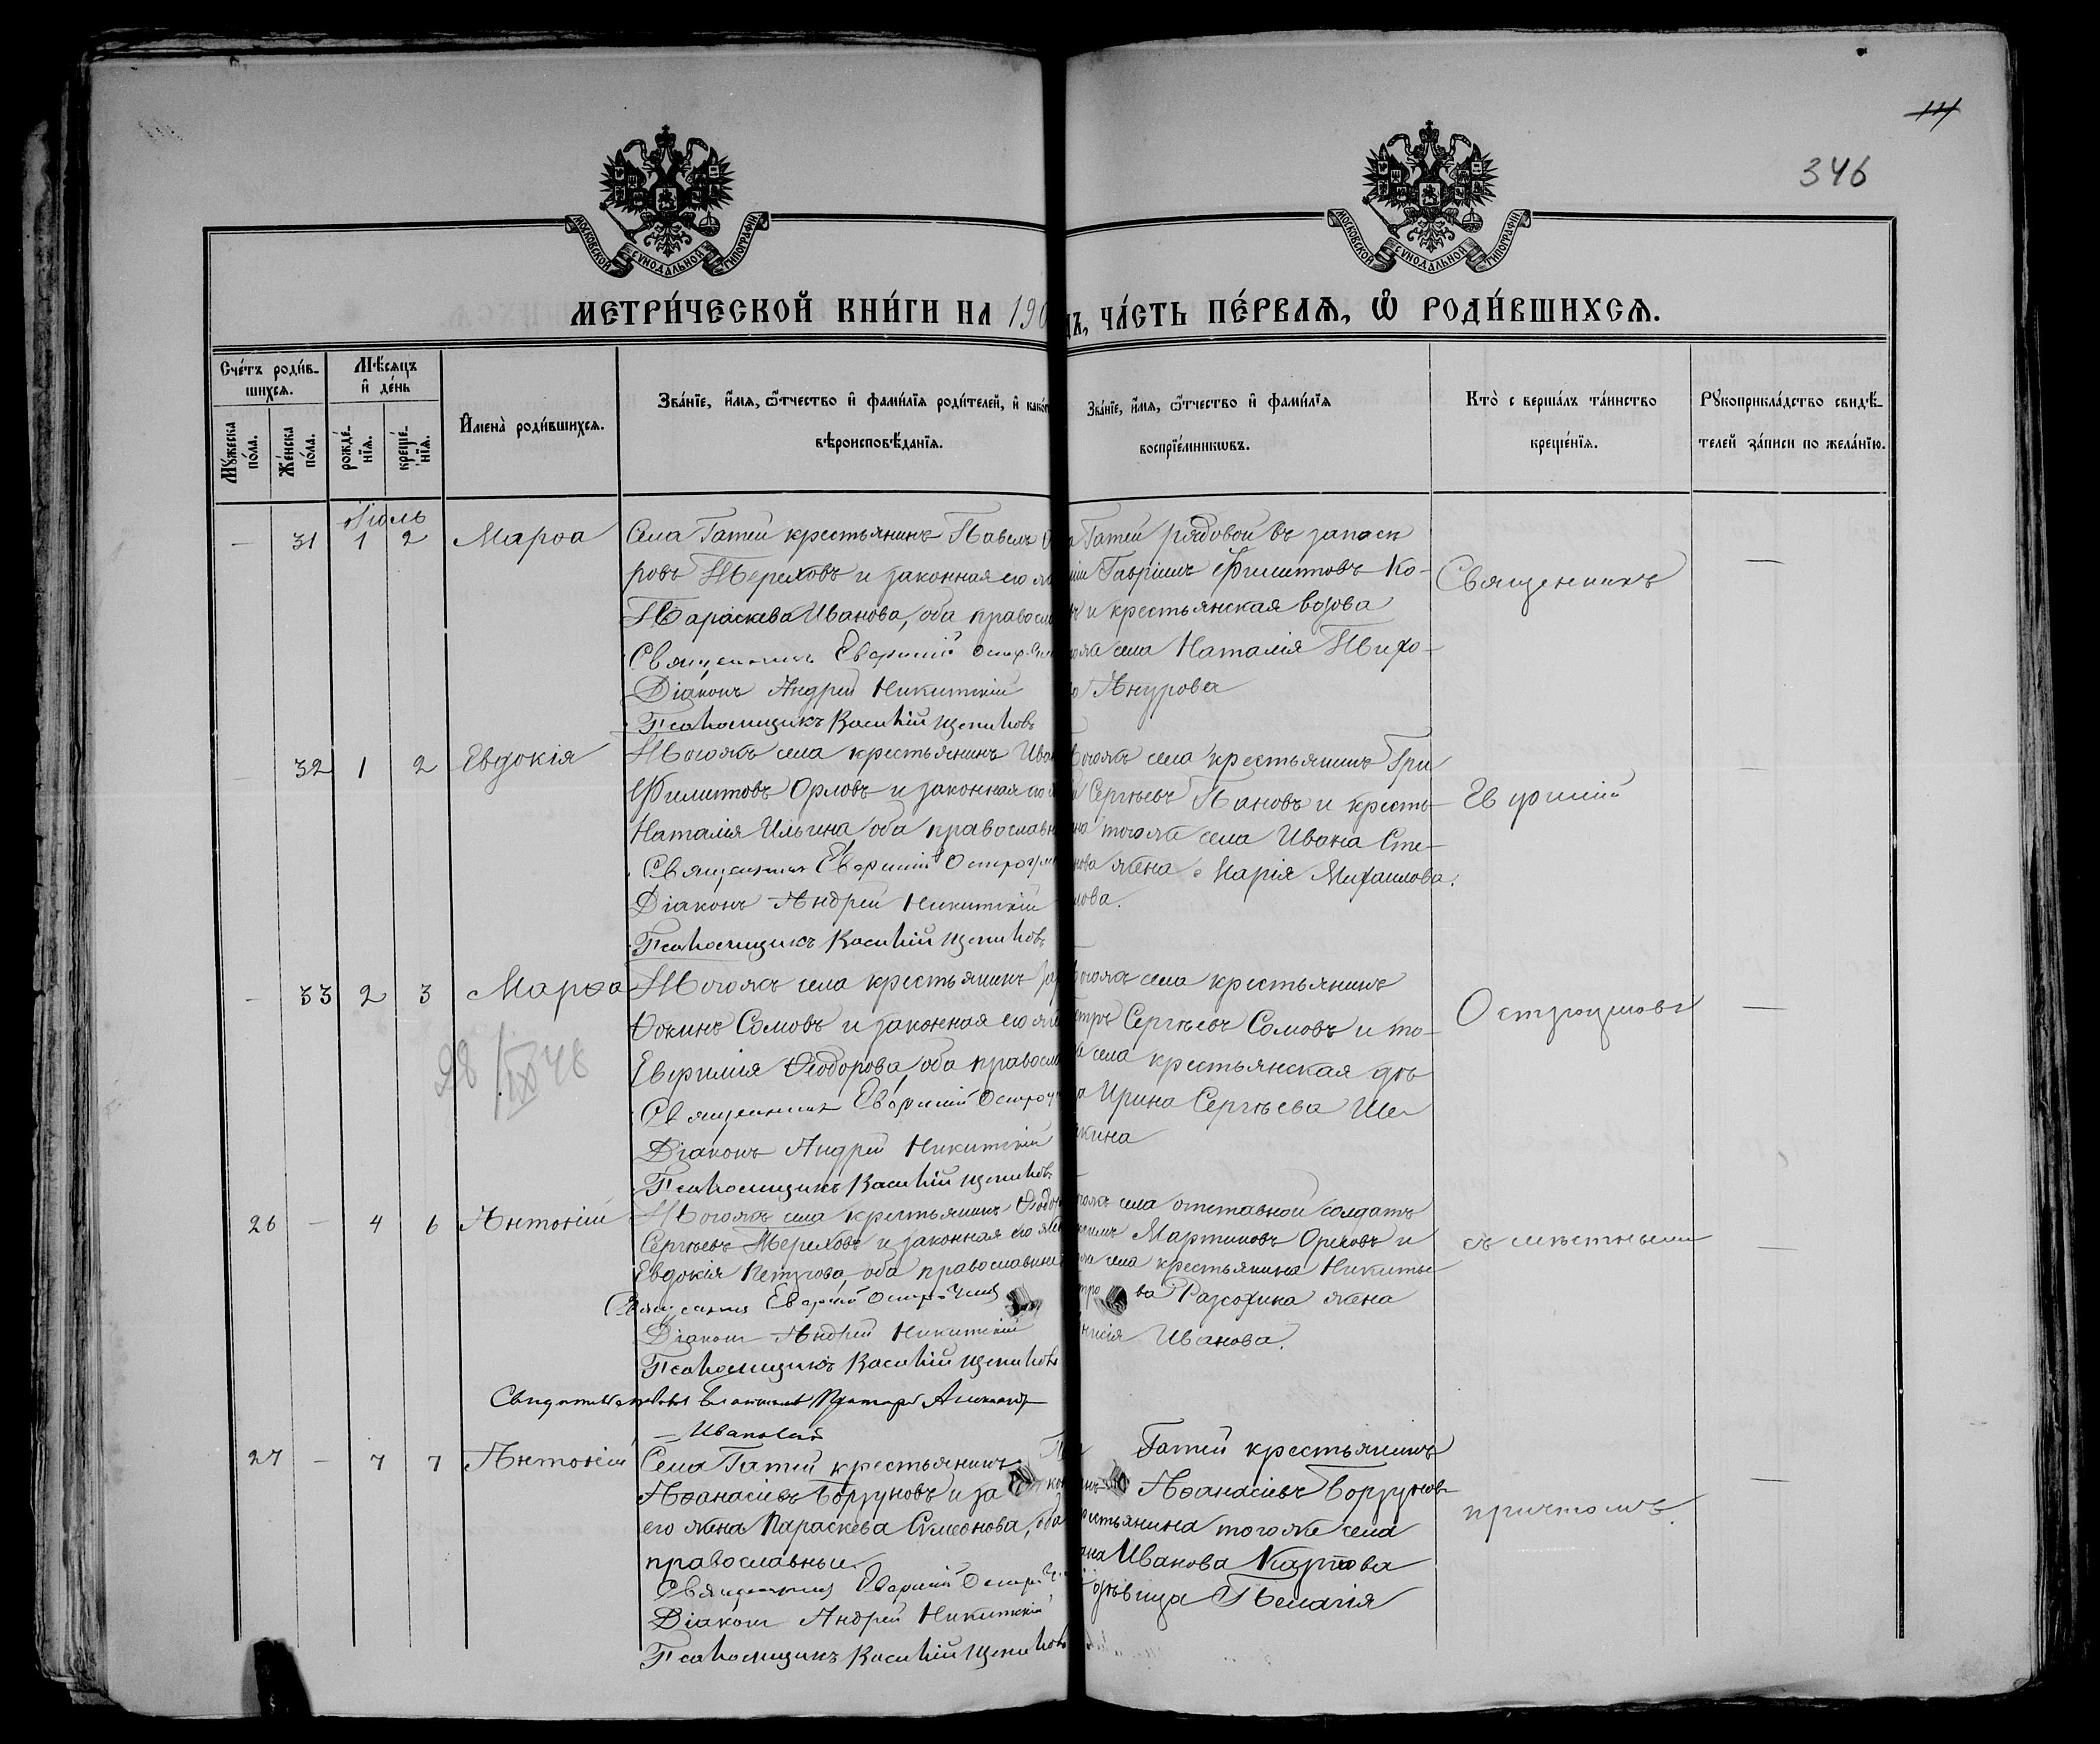 111
346
МОСКОВСКОЙ СѴНОДАЛЬНОЙ ТИПОГРАФІИ
МОСКОВСКОЙ СѴНОДАЛЬНОЙ ТИПОГРАФІИ
МЕТРИ́ЧЕСКОЙ КНИ́ГИ НА 190
ДЪ, ЧА́СТЬ ПЕ́РВАЯ, Ѡ РОДИ́ВШИХСЯ.
Сче́тъ роди́в-
шихся.
Мѣсяцъ
и де́нь
Му́жеска
по́ла.
Же́нска
по́ла.
рожде́-
нія.
креще́-
нія.
Имена̀ роди́вшихся.
Зва́ніе, и́мя, ѿтчество и фами́лія роди́телей, и како́г
вѣроисповѣ́данія.
Зва́ніе, и́мя, ѿтчество и фами́лія
воспріе́мникωвъ.
Кто̀ соверша́лъ та́инство
креще́нія.
Рукоприкла́дство свидѣ́-
телей за́писи по жела́нію.
Іюль
— 31 1 2 Марѳа
Села Гатей крестьянинъ Павелъ
ровъ Тереховъ и законная его
Параскева Иванова, оба правосла
Священникъ Евфимій Остр
Діаконъ Андрей Никитскій
Псаломщикъ Василій Щепиловъ
Гатей рядовой въ запасѣ
Гавріилъ Филиповъ Ко-
и крестьянская вдова
села Наталія Тихо-
Янурова
Священникъ
—
— 32 1 2 Евдокія
Тогожъ села крестьянинъ Иван
Филиповъ Орловъ и законная его
Наталія Ильина оба православн
Священникъ Евфимій Остроум
Діаконъ Андрей Никитскій
Псаломщикъ Василій Щепиловъ
тогожъ села крестьянинъ Гри
Сергѣевъ Пановъ и кресть-
тогоже села Ивана Сте-
нова жена Марія Михаилова.
лова.
Евфимій
—
— 33 2 3 Марѳа
Тогожъ села крестьянинъ
Ѳокинъ Сомовъ и законная его
Евфимія Ѳеодорова, оба правосла
Священникъ Евфимій Остроу
Діаконъ Андрей Никитскій
Псаломщикъ Василій Щепиловъ
тогожъ села крестьянинъ
Петръ Сергѣевъ Сомовъ и то-
села крестьянская дѣ
Ирина Сергѣева Ше
кина
Остроумовъ
—
28/IX 48
26 — 4 6 Антоній
Тогожъ села крестьянинъ Ѳеодо
Сергѣевъ Тереховъ и законная его
Евдокія Петрова, оба православны
Священникъ Евфимій Остроум
Діаконъ Андрей Никитскій
Псаломщикъ Василій Щепиловъ
села отставной солдатъ
Мартиновъ Ореховъ и
села крестьянина Никиты
жена
Иванова.
съ мѣстнымъ
—
Ивановъ
27 — 7 7 Антоній
Села Гатей крестьянинъ
Аѳанасьевъ Борзуновъ и за
его жена Параскева Симеонова, оба
православные.
Священникъ Евфимій Остроу
Діаконъ Андрей Никитскій
Псаломщикъ Василій Щепилов
Гатей крестьянинъ
Аѳанасіевъ Борзуновъ
крестьянина тогоже села
Иванова Карпова
дѣвица Пелагія
причтомъ.
—